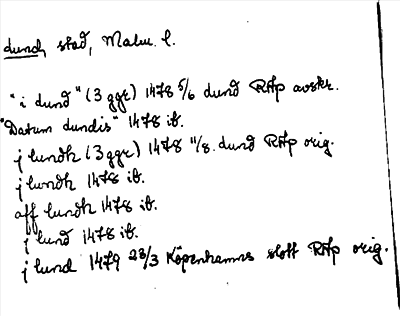 Lund, stad, Malm. l.
"i Lund" (3 ggr) 1478 5/6 Lund RAp avskr.
"Datum Lundis" 1478 ib.
j lundh (3 ggr) 1478 11/8. Lund RAp orig.
j lwndh 1478 ib.
aff lundh 1478 ib.
j lund 1478 ib.
j lund 1479 23/3 Köpenhamns slott RAp orig.